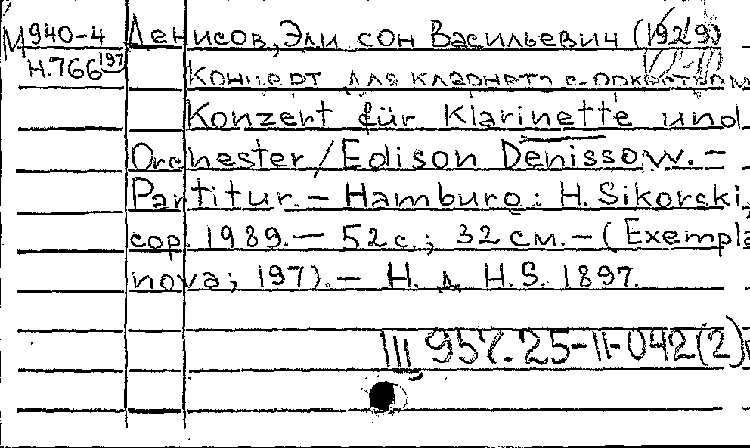 М940-4 Денисов, Эдисон Васильевич (1929)
Н.766 197 Концерт для кларнета с оркестром
Konzert für Klarinette und
Orchester/Edison Denissow. –
Partitur. – Hamburg: H. Sikorski,
cop. 1989. – 52 с.; 32 см. – (Exempla
nova; 197). – Н. д. H.S. 1897.
III 95/. 25-11-042(2)